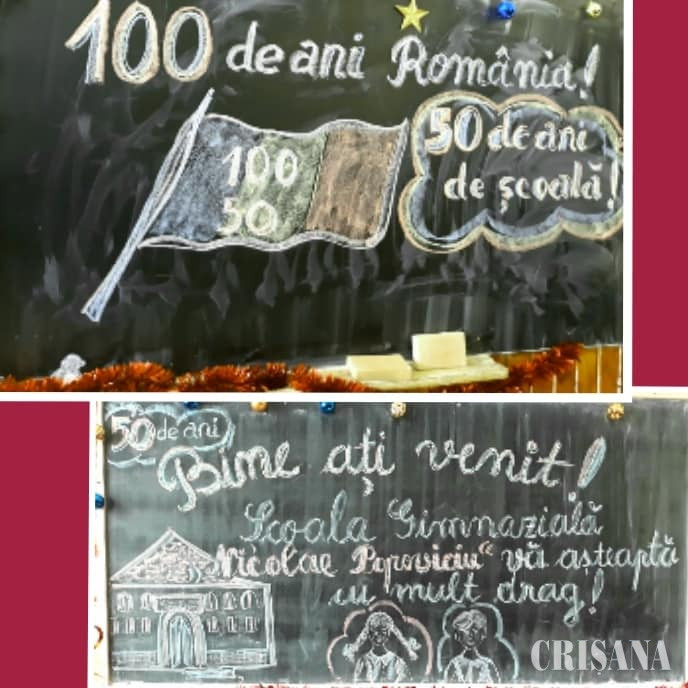 100 de ani România!
100
50
50 de ani
de școală!
50 de ani
Bine ați venit!
Școala Gimnazială
„Nicolae Popoviciu“ vă așteaptă
cu mult drag!
CRIȘANA